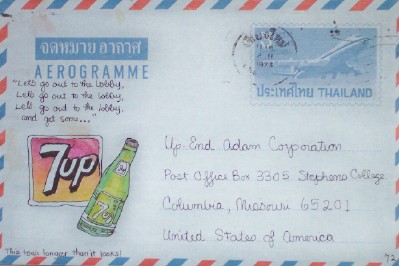 จดหมายอากาศ
AEROGRAMME
"Let's go out to the lobby,
Let's go out to the lobby,
Let's go out to the lobby,
and get some..."
7up
7up
This took longer than it looks!
ประเทศไทย THAILAND
Up-End Adam Corporation
Post Office Box 3305 Stephens College
Columbia, Missouri 65201
United States of America
72